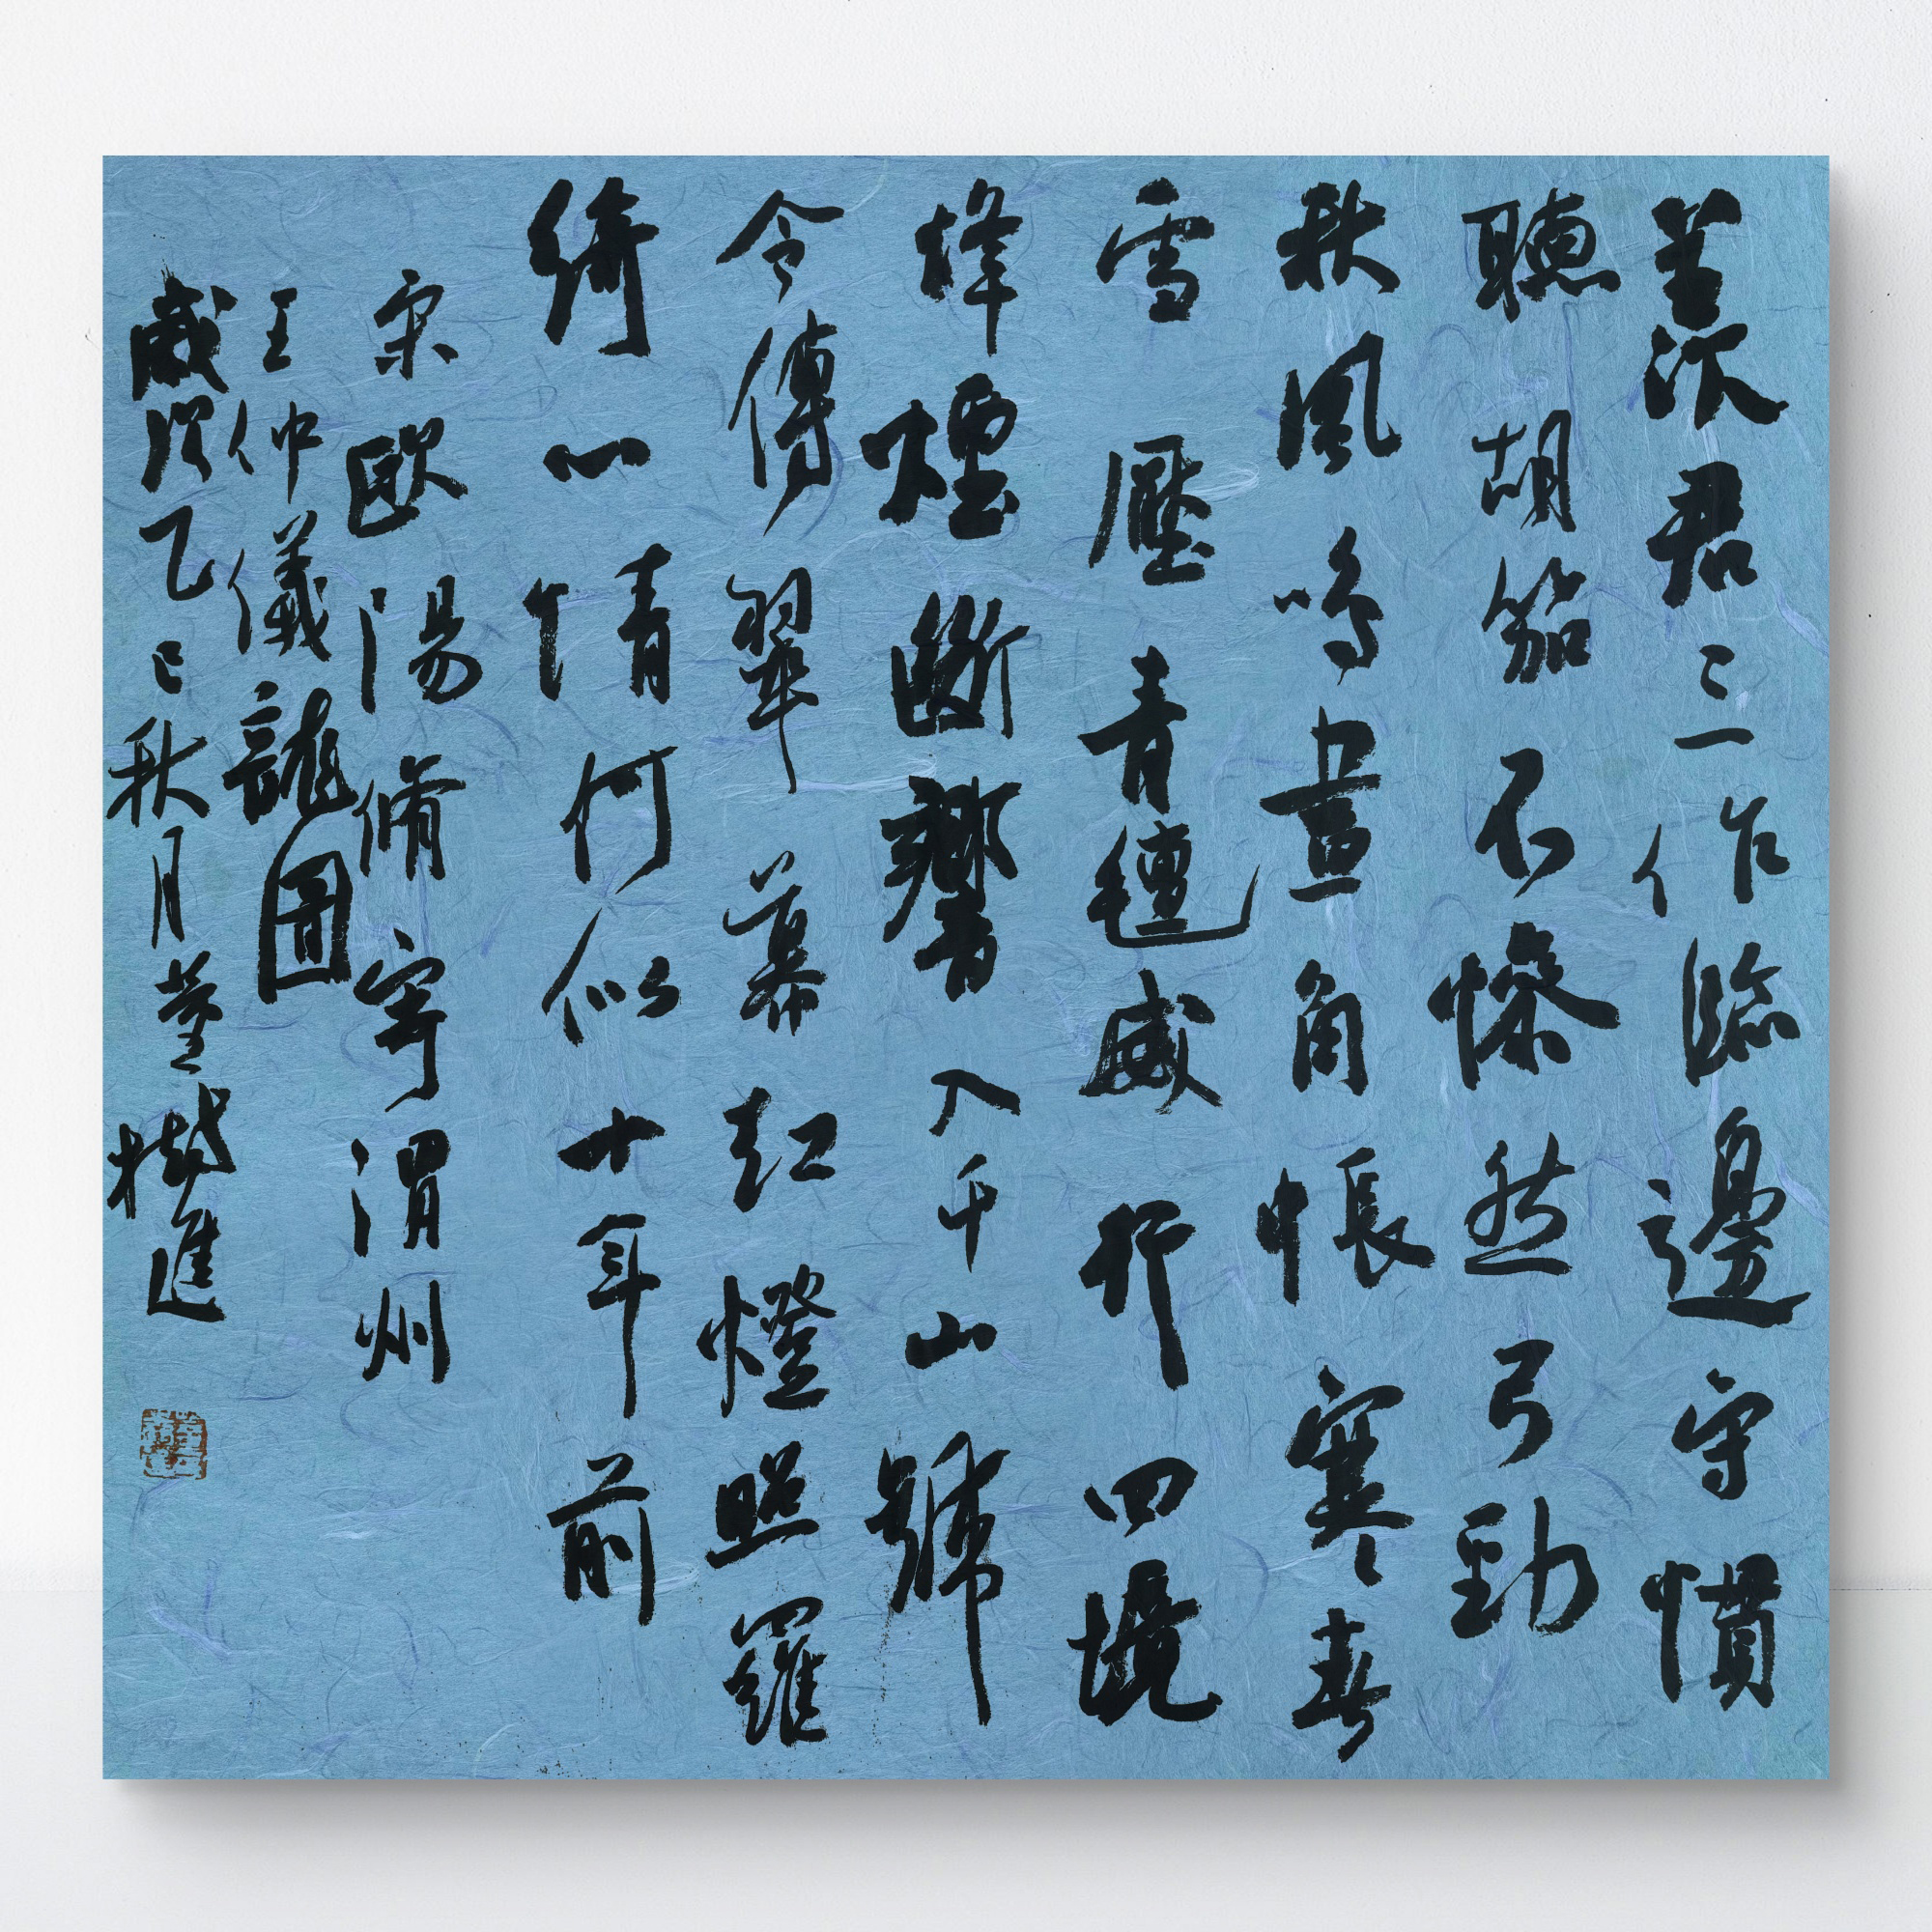 羨君三作臨邊守慣
聽胡笳不慘然弓勁
秋風鳴畫角帳寒春
雪壓青氊威行四境
烽煙斷響入千山號
令傳翠幕紅燈照羅
綺心情何似十年前
宋歐陽脩寄渭州
王仲儀龍圖
乙巳秋月董進